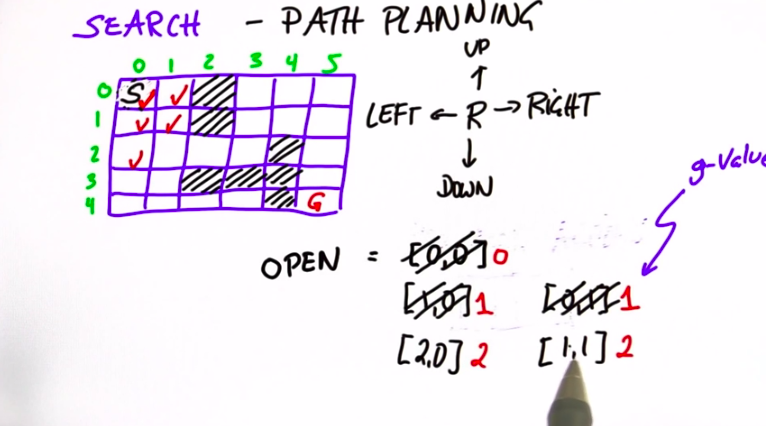 SEARCH - PATH PLANNING
0 1 2 3 4 5
0 S
1
2
3
4 G
UP
LEFT ← R → RIGHT
DOWN
g-Value
OPEN = [0,0] 0
[1,0] 1 [0,1] 1
[2,0] 2 [1,1] 2